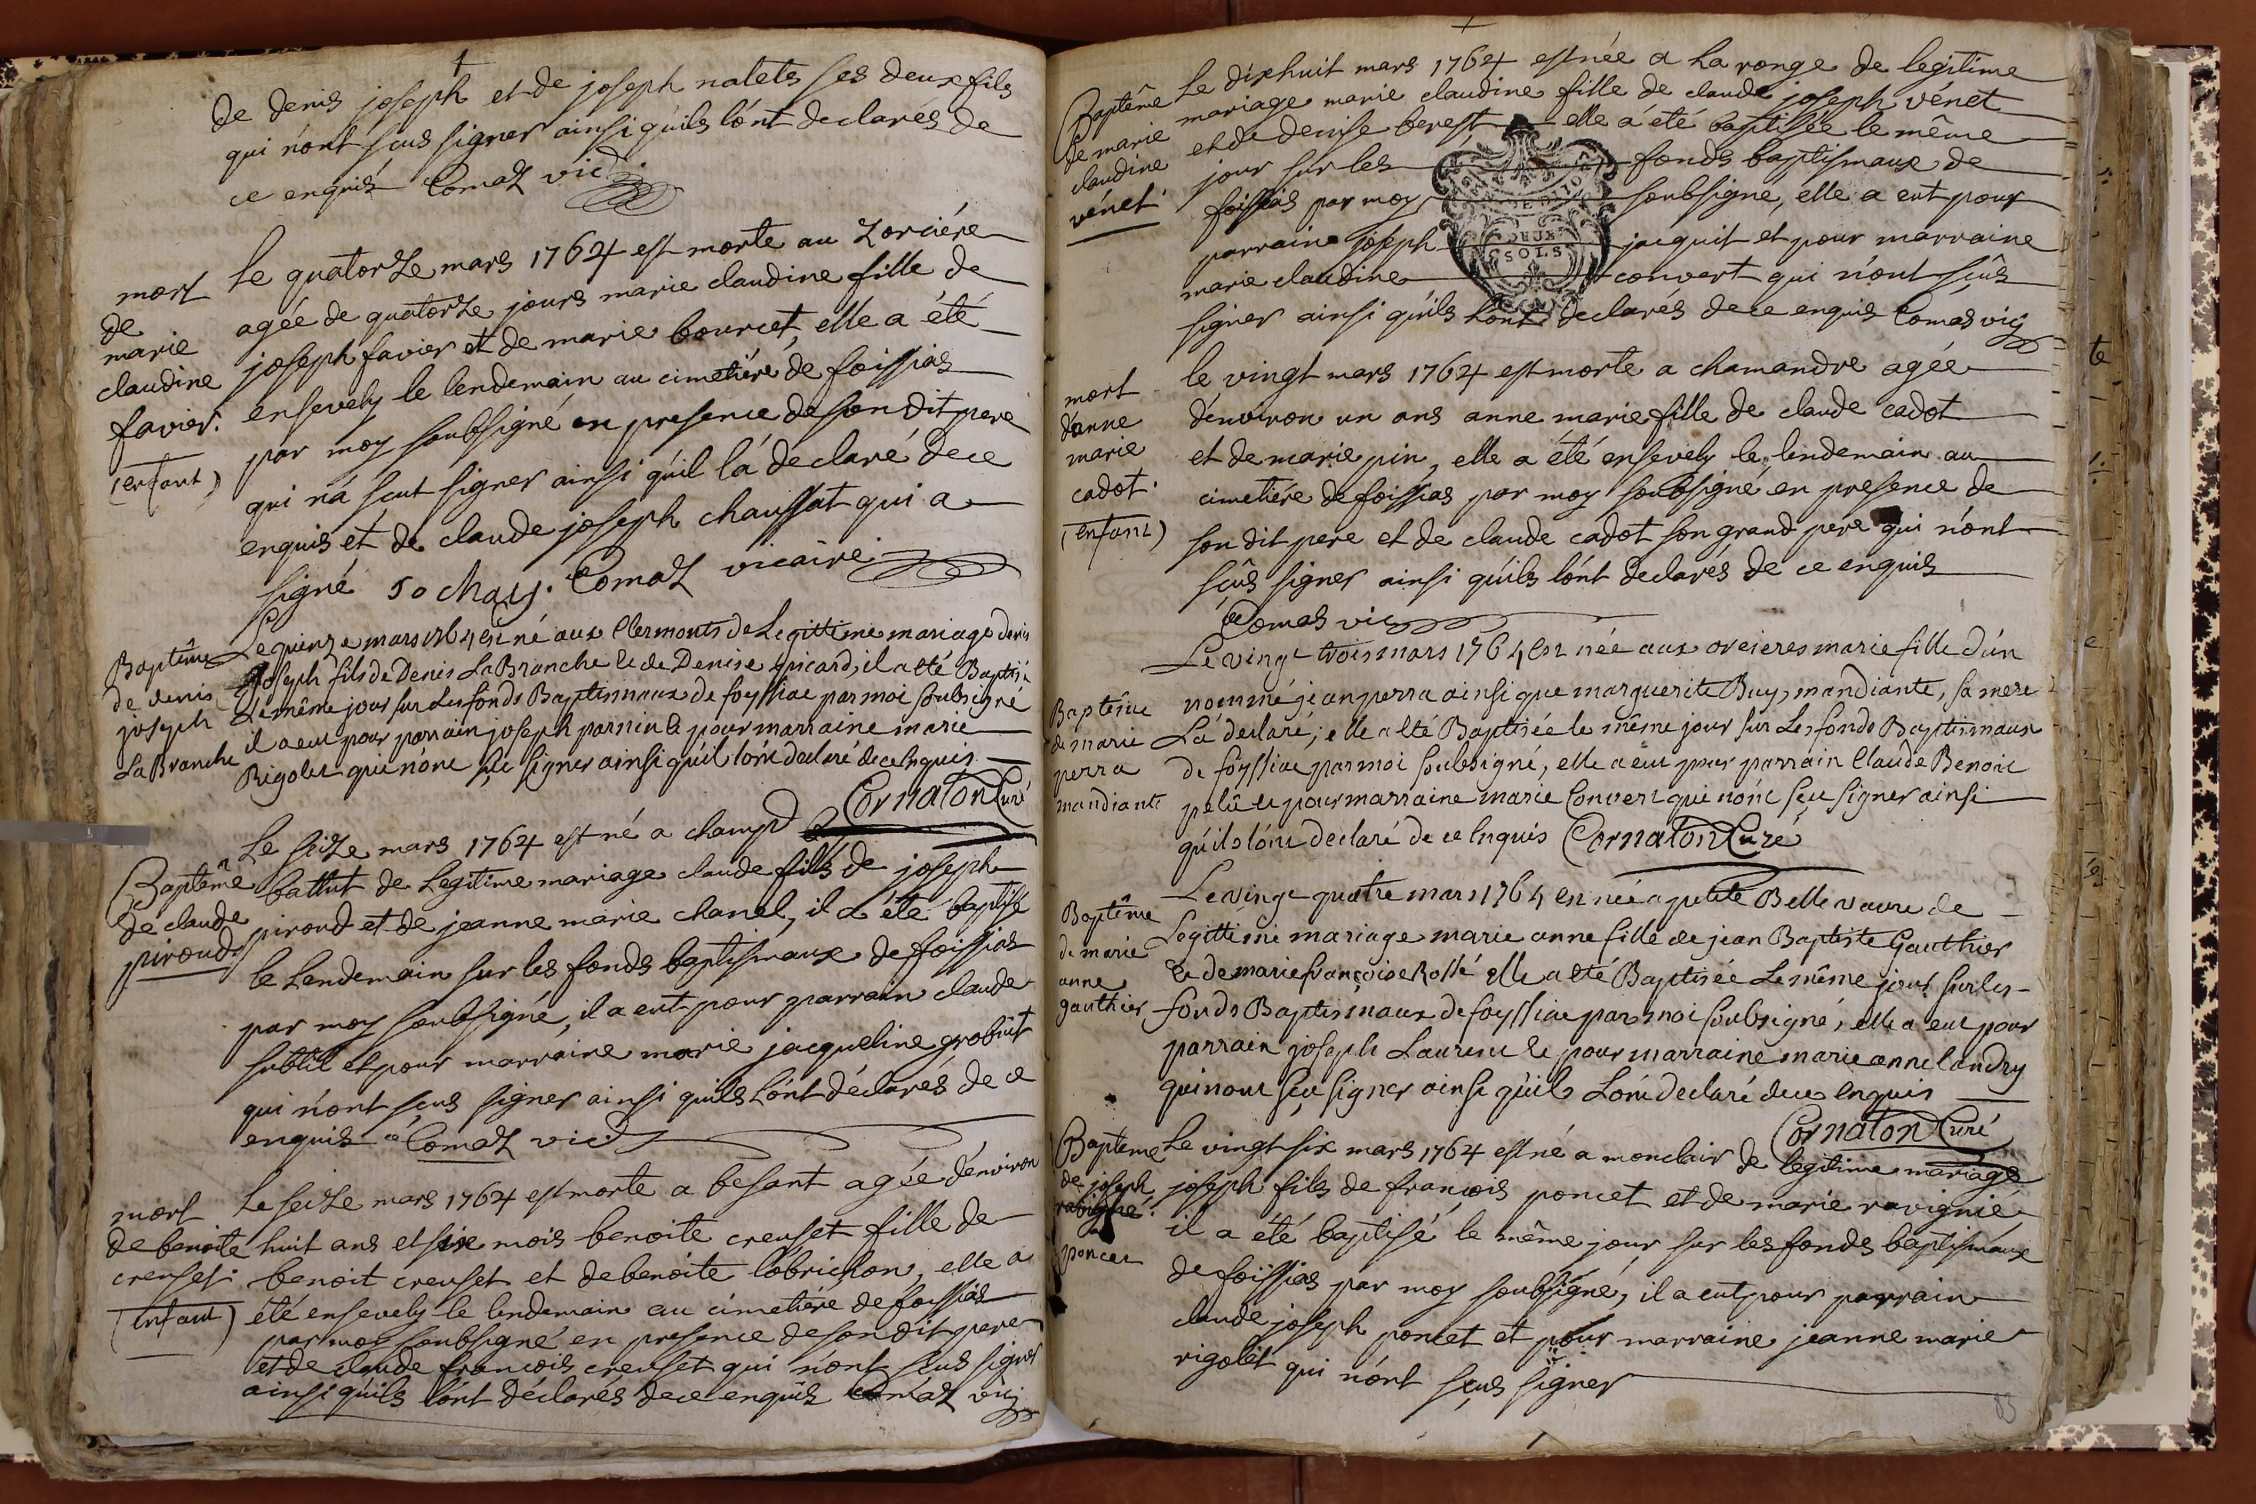 de denis joseph et de joseph nalets ses deux fils
qui n'ont scus signer ainsi quils l'ónt declarés de
ce enquis Comaz vic
mort
de
marie
claudine
favier.
(enfant)
le quatorze mars 1764 est morte au
agée de quatorze jours marie claudine fille de
joseph favier et de marie bourcet, elle a été
ensevely le lendemain au cimetiére de foissias
par moy soubsigné en presence de son dit pere
qui n'a scut signer ainsi qu'il lá déclaré de ce
enquis et de claude joseph chaussat qui a
signé Comaz vicaire
Baptême
de denis
joseph
La Branche
Le quinze mars 1764 est né aux Clermonts de Legittime mariage denis
joseph fils de Denis La Branche et de Denise picard, il a eté Baptisé
le même jour sur Les fonds Baptismaux de foyssiac par moi soubsigné
il a eut pour parrain joseph et pour marraine marie
Rigolet qui n'ont sçu signer ainsi qu'il lónt declaré de ce Enquis
Cornaton Curé
Baptême
de claude
piroud
Le seize mars 1764 est né a champ
battut de Legitime mariage claude fils de joseph
piroud et de jeanne marie chanel, il a été baptisé
le Lendemain sur les fonds baptismaux de foissias
par moy soubsigné, il a eut pour parrain claude
subtil et pour marraine marie jacqueline grobüit
qui n'ont scus signer ainsi quils l'ónt déclarés de ce
enquis Comaz vic
mort
de benoite
creuset.
(Enfant)
Le seize mars 1764 est morte a besant agée d'environ
huit ans et six mois benoite creuset fille de
benoit creuset et de benoite lobrichon, elle a
été ensevely le lendemain au cimetiére de foissias
par moy soubsigné en presence de son dit pere
et de claude francois creuset qui n'ont scus signer
ainsi quils l'ónt déclarés de ce enquis Comaz vic
Baptême
de marie
claudine
vénet.
Le dixhuit mars 1764 est née a La ronge de legitime
mariage marie claudine fille de claude joseph vénet
et de denise berest elle a été baptisée le même
jour sur les fonds baptismaux de
foissias par moy soubsigné, elle a eut pour
parrain joseph jacquit et pour marraine
marie claudine convert qui n'ont scûs
signer ainsi qu'ils l'ont declarés de ce enquis Comas vic
DEUX
SOLS
mort
d'anne
marie
cadot.
(enfant)
le vingt mars 1764 est morte a chamandre agée
d'environ un ans anne marie fille de claude cadot
et de marie pin, elle a été ensevely le lendemain au
cimetiére de foissias par moy soubsigné en presence de
son dit pere et de claude cadot son grand pere qui n'ont
scûs signer ainsi qu'ils l'ónt declarés de ce enquis
Comas vic
Baptême
de marie
perra
mandiante
Le vingt trois mars 1764 est née aux orcieres marie fille d'un
nommé jean perra ainsi que marguerite Buy, mandiante, sa mere
La declaré; elle a eté Baptisée le même jour sur Les fonds Baptismaux
de foyssiac par moi soubsigné, elle a eut pour parrain Claude Benoit
pelû et pour marraine marie Convert qui n'ont sçu signer ainsi
qu'ils l'ónt declaré de ce Enquis Cornaton Curé
Baptême
de marie
anne
gauthier
Le vingt quatre mars 1764 est née a petite Bellevavre de
Legittime mariage marie anne fille de jean Baptiste Gauthier
et de marie françoise Rossé elle a eté Baptisée Le même jour sur les
fonds Baptismaux de foyssiac par moi soubsigné, elle a eut pour
parrain joseph Laurent et pour marraine marie anne landry
qui n'ont sçu signer ainsi qu'ils L'ónt declaré de ce Enquis
Cornaton Curé
Bapteme
de joseph
ravignié
ou
poncet
Le vingt six mars 1764 est né a monclair de legitime mariage
joseph fils de francois poncet et de marie ravignié
il a été baptisé le même jour sur les fonds baptismaux
de foissias par moy soubsigné, il a eut pour parrain
claude joseph poncet et pour marraine jeanne marie
rigolét qui n'ónt scus signer
83